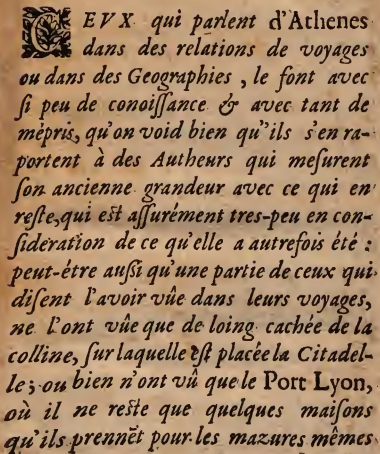 CEVX qui parlent d'Athenes
dans des relations de voyages
ou dans des Geographies, le font avec
ſi peu de conoiſſance & avec tant de
mépris, qu'on void bien qu'ils s'en ra-
portent à des Autheurs qui meſurent
ſon ancienne grandeur avec ce qui en
reſte, qui eſt aſſurément tres-peu en con-
ſideration de ce qu'elle a autrefois été :
peut-étre auſſi qu'une partie de ceux qui
diſent l'avoir vûe dans leurs voyages,
ne l'ont vûe que de loing cachée de la
colline, ſur laquelle eſt placée la Citadel-
le ; ou bien n'ont vû que le Port Lyon,
où il ne reſte que quelques maiſons
qu'ils prennẽt pour les mazures mêmes